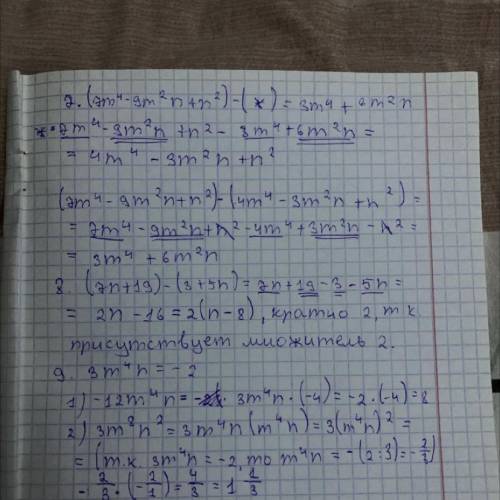 7. (7m⁴-9m²n+n²)-(*) = 3m⁴+6m²n
*=7m⁴-9m²n+n²-3m⁴+6m²n=
=4m⁴-3m²n+n²
(7m⁴-9m²n+n²)-(4m⁴-3m²n+n²)=
=7m⁴-9m²n+n²-4m⁴+3m²n-n²=
=3m⁴+6m²n
8. (7n+19)-(3+5n)=7n+19-3-5n=
=2n-16=2(n-8), кратно 2, т.к
присутствует множитель 2.
9. 3m⁴n=-2
1) -12m⁴n= 3m⁴n·(-4)=-2·(-4)=8
2) 3m⁸n²=3m⁴n(m⁴n)=3(m⁴n)²=
=(т.к. 3m⁴n=-2, то m⁴n=-(2:3)=-2/3)
-2/3·(-2/1)=4/3=1 1/3